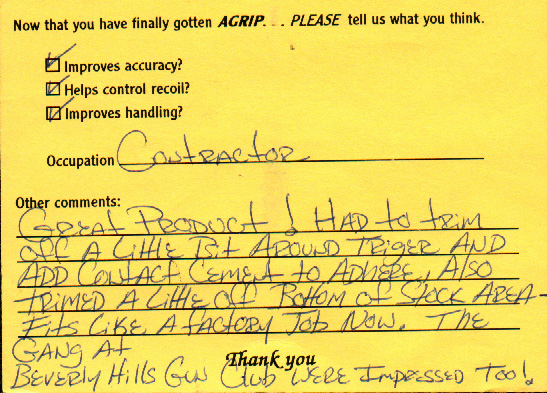 Now that you have finally gotten AGRIP... PLEASE tell us what you think.
Improves accuracy?
Helps control recoil?
Improves handling?
Occupation Contractor
Other comments:
Great Product! Had to trim
off A Little Bit Around Triger And
Add Contact Cement to Adhere, Also
Trimed A Little off Bottom of Stock Area-
Fits Like A factory Job Now. The
Gang At
Thank you
Beverly Hills Gun Club Were Impressed Too!